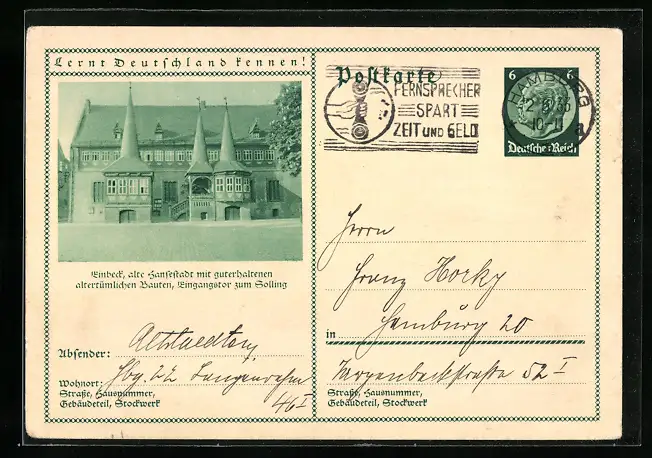 Lernt Deutschland kennen!
Einbeck, alte Hansestadt mit guterhaltenen
altertümlichen Bauten, Eingangstor zum Solling
Absender:
Wohnort: Hbg. 22
46 I
Straße, Hausnummer,
Gebäudeteil, Stockwerk
Postkarte
FERNSPRECHER
SPART
ZEIT UND GELD
HAMBURG
a
6 6
Deutsches Reich
Herrn
Franz Horky
in Hamburg 20
52 I
Straße, Hausnummer,
Gebäudeteil, Stockwerk